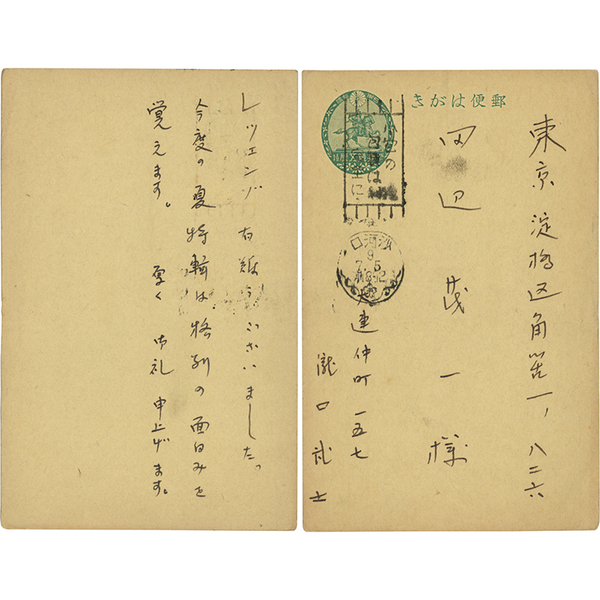 レツェンゾ有難うございました。
今度の夏特輯は、格別の面白みを
覚えます。厚く御礼申上げます。
郵便はがき
東京淀橋区角筈一ノ八二六
田辺茂一様
大連仲町一五七
瀧口武士
沙河口
9
7.5